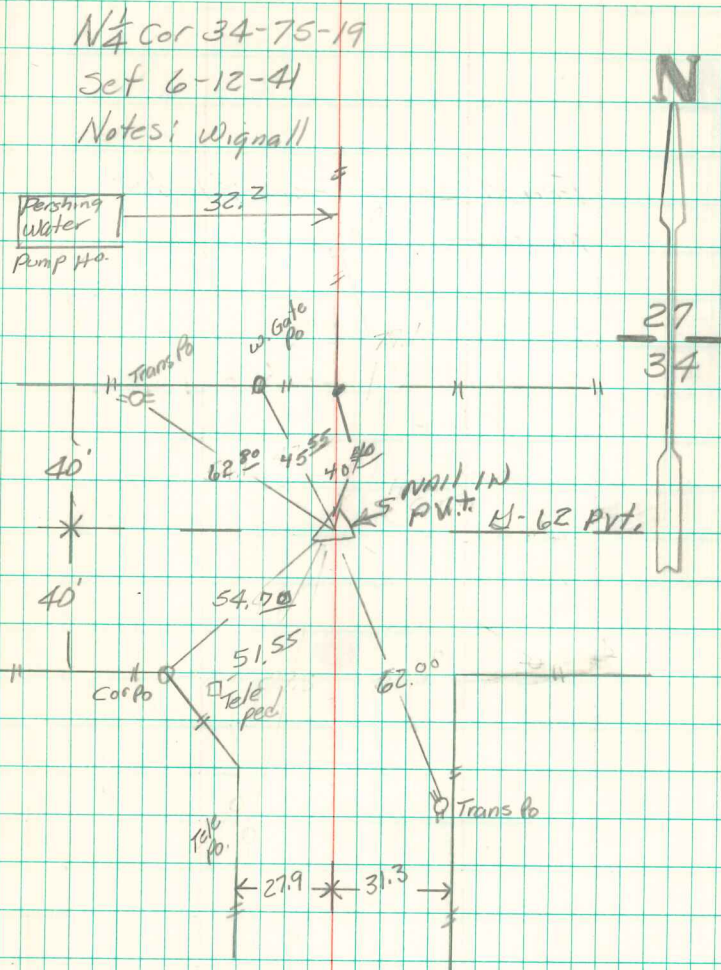 N 1/4 Cor 34-75-19
Set 6-12-41
Notes: Wignall
N
Pershing
Water
Pump Ho.
32.2
27
34
Trans Po
W. Gate
Po
40'
62.80
45.55
40.40
NAIL IN
PVt.
H-62 Pvt.
40'
54.70
51.55
62.00
Cor Po
Tele
ped
Trans Po
Tele
Po.
27.9
31.3